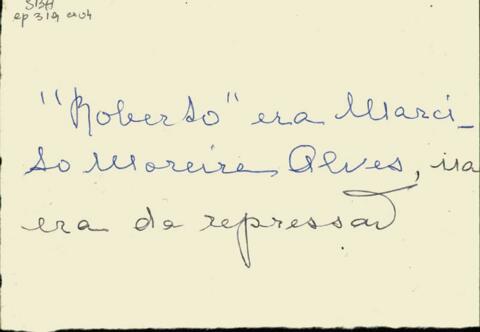 SBH
"Roberto" era Marci-
so Moreira Alves, na
era da repressão